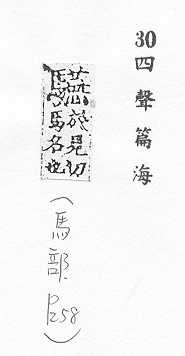 30 四聲篇海
驠於見切
馬名也
(馬部 P258)